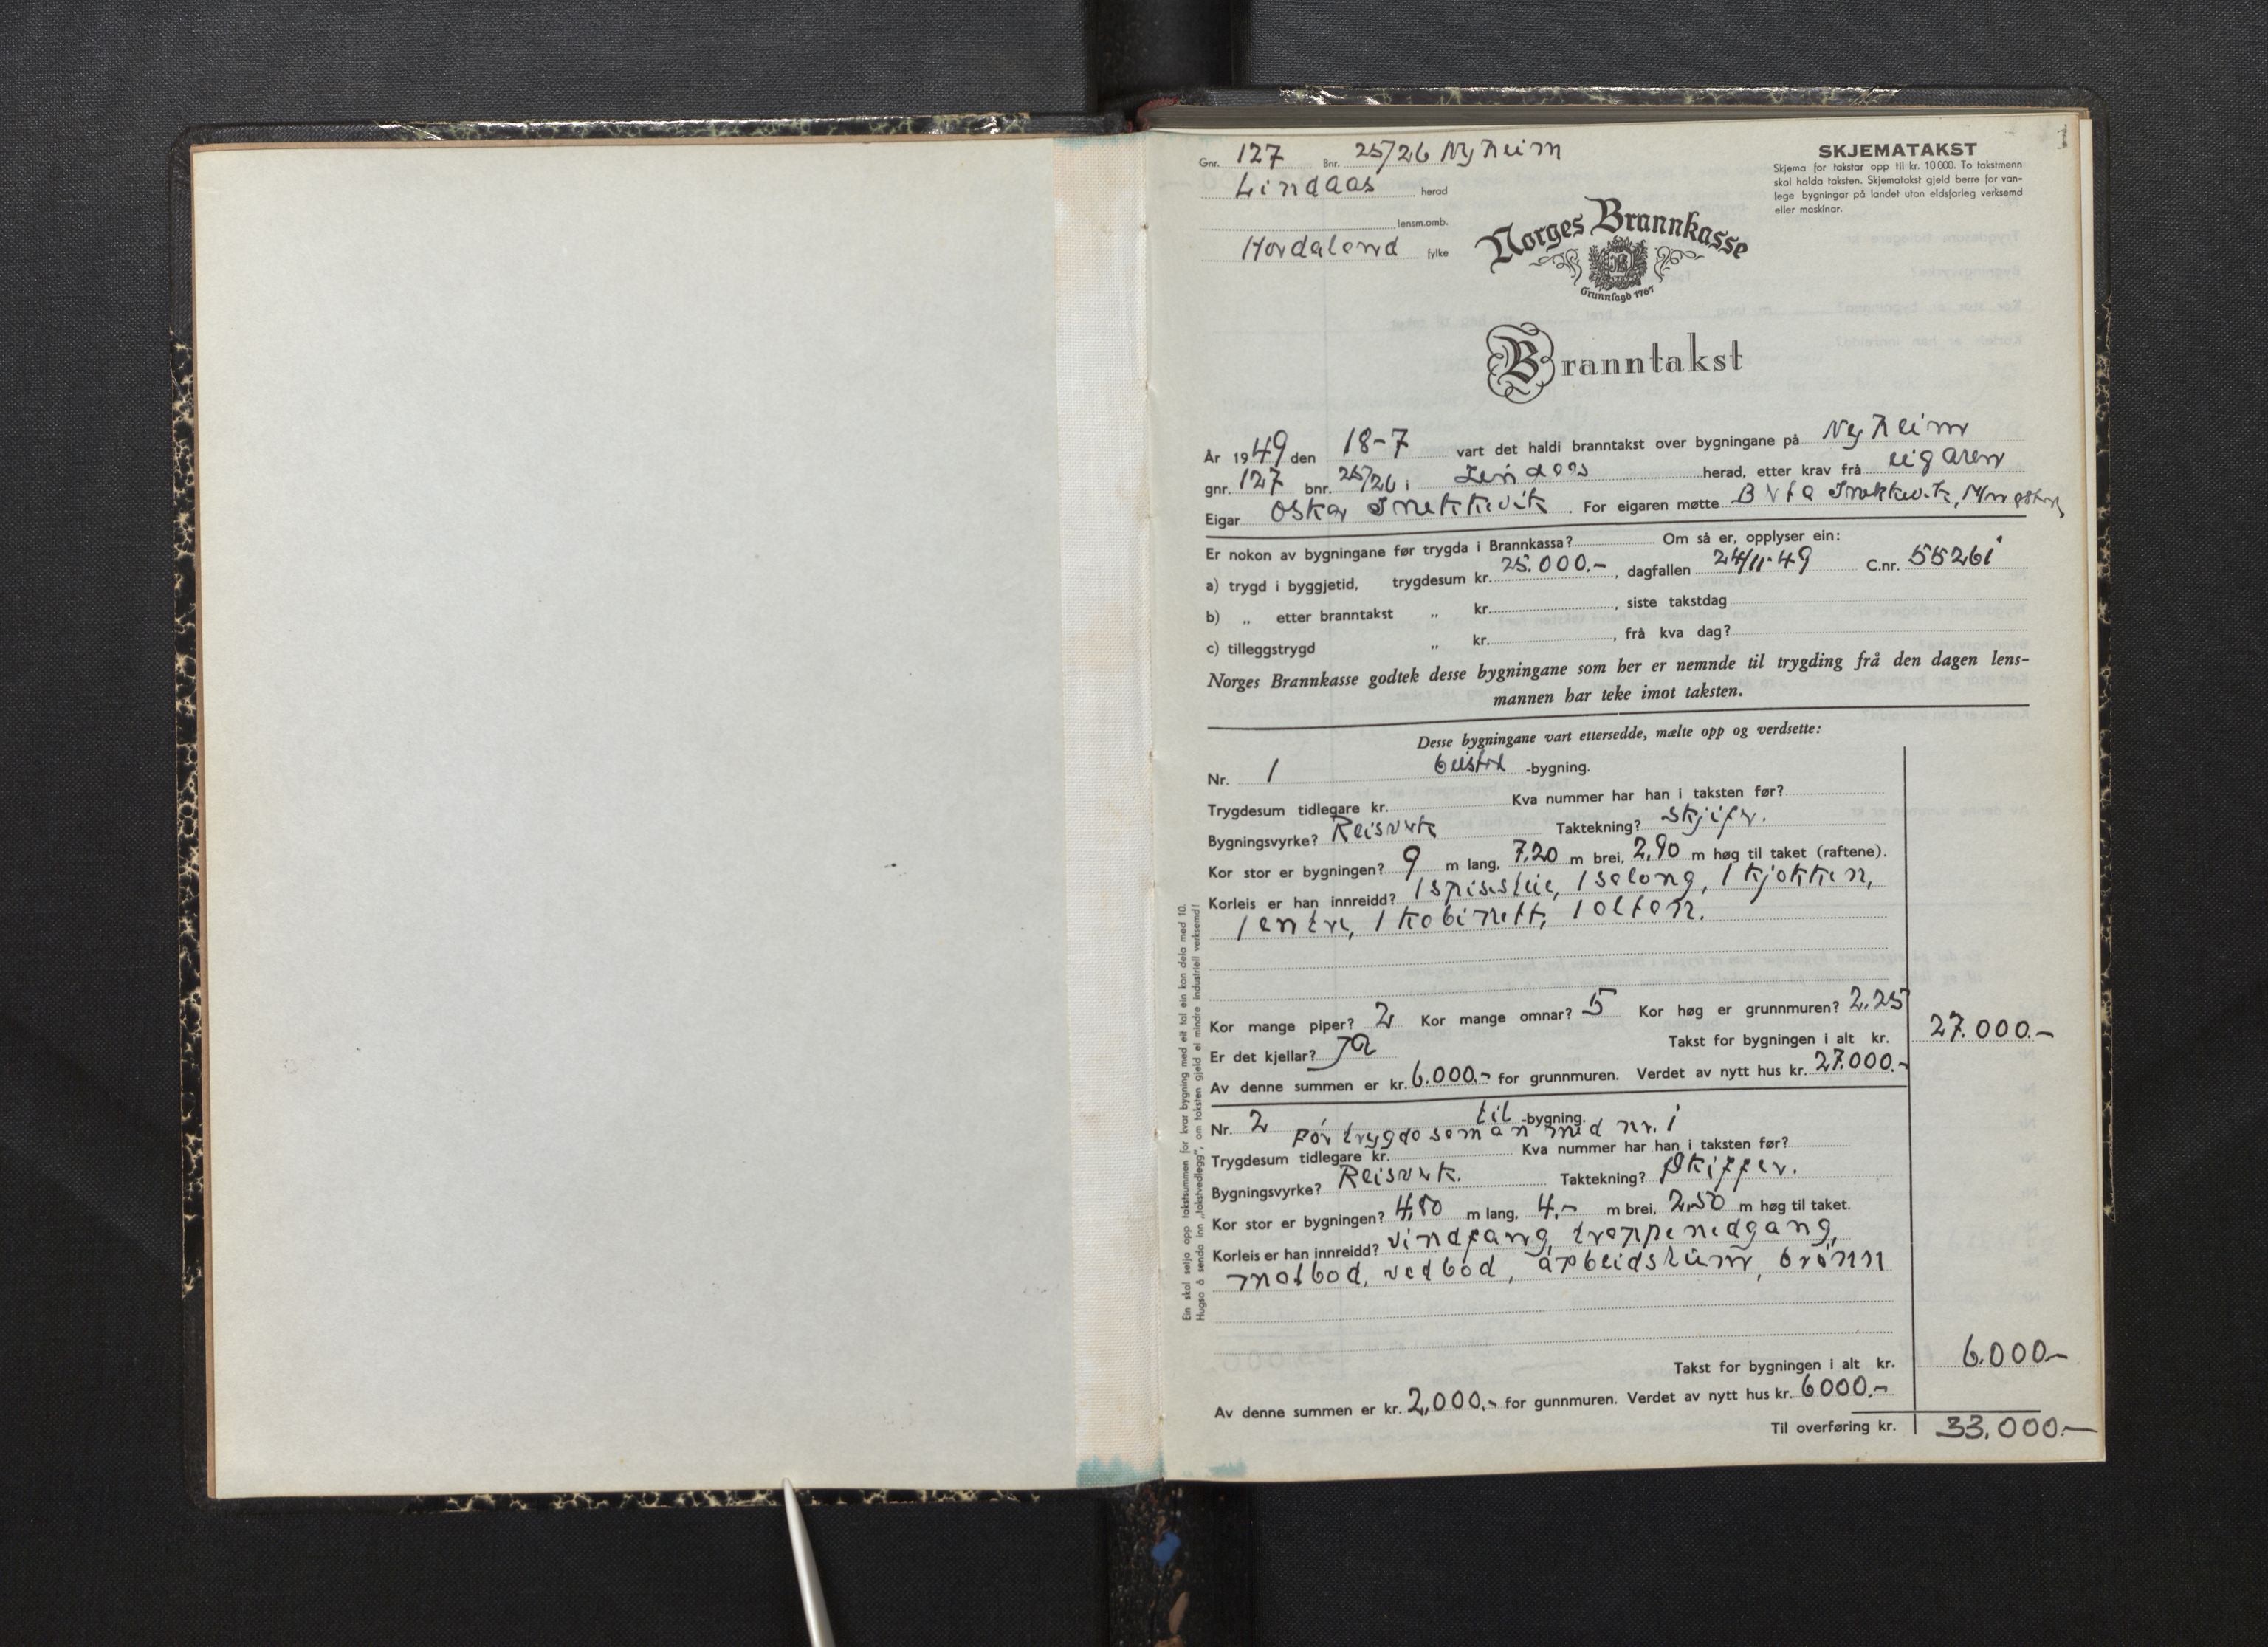 Gnr. 127 Bnr. 25/26 Nyheim
Lindaas herad
lensm.omb.
Hordaland fylke
SKJEMATAKST
Skjema for takstar opp til kr. 10 000. To takstmenn
skal halda taksten. Skjematakst gjeld berre for van-
lege bygningar på landet utan eldsfarleg verksemd
eller maskinar.
Norges Brannkasse
Grunnlagd 1767
Branntakst
År 1949 den 18-7 vart det haldi branntakst over bygningane på Nyheim
gnr. 127 bnr. 25/26 i Lindaas herad, etter krav frå eigaren
Eigar Oskar Snekkevik. For eigaren møtte Snekkevik,
Er nokon av bygningane før trygda i Brannkassa? Om så er, opplyser ein:
a) trygd i byggjetid, trygdesum kr. 25.000.-, dagfallen 24/11-49 C.nr. 55261
b) „ etter branntakst „ kr. , siste takstdag
c) tilleggstrygd „ kr. , frå kva dag?
Norges Brannkasse godtek desse bygningane som her er nemnde til trygding frå den dagen lens-
mannen har teke imot taksten.
Desse bygningane vart ettersedde, mælte opp og verdsette:
Nr. 1 -bygning.
Trygdesum tidlegare kr. Kva nummer har han i taksten før?
Bygningsvyrke? Reisverk Taktekning? Skjifer.
Kor stor er bygningen? 9 m lang, 7,20 m brei, 2,90 m høg til taket (raftene).
Korleis er han innreidd? 1 spisestue, 1 salong, 1 kjøkken,
1 entre, 1 kabinett, 1 altan.
Kor mange piper? 2 Kor mange omnar? 5 Kor høg er grunnmuren? 2.25
Er det kjellar? Ja Takst for bygningen i alt kr. 27.000.-
Av denne summen er kr. 6.000.- for grunnmuren. Verdet av nytt hus kr. 27.000.-
Nr. 2 til -bygning.
Før trygda saman med nr. 1
Trygdesum tidlegare kr. Kva nummer har han i taksten før?
Bygningsvyrke? Reisverk. Taktekning? Skiffer.
Kor stor er bygningen? 4,80 m lang, 4.- m brei, 2,50 m høg til taket.
Korleis er han innreidd? vindfang, trappenedgang,
matbod, vedbod, arbeidsrum, brønn
Takst for bygningen i alt kr. 6.000.-
Av denne summen er kr. 2,000.- for gunnmuren. Verdet av nytt hus kr. 6000.-
Til overføring kr. 33.000.-
Ein skal setja opp takstsummen for kvar bygning med eit tal ein kan dela med 10.
Hugso å senda inn „takstvedlegg", om taksten gjeld ei mindre industriell verksemd!